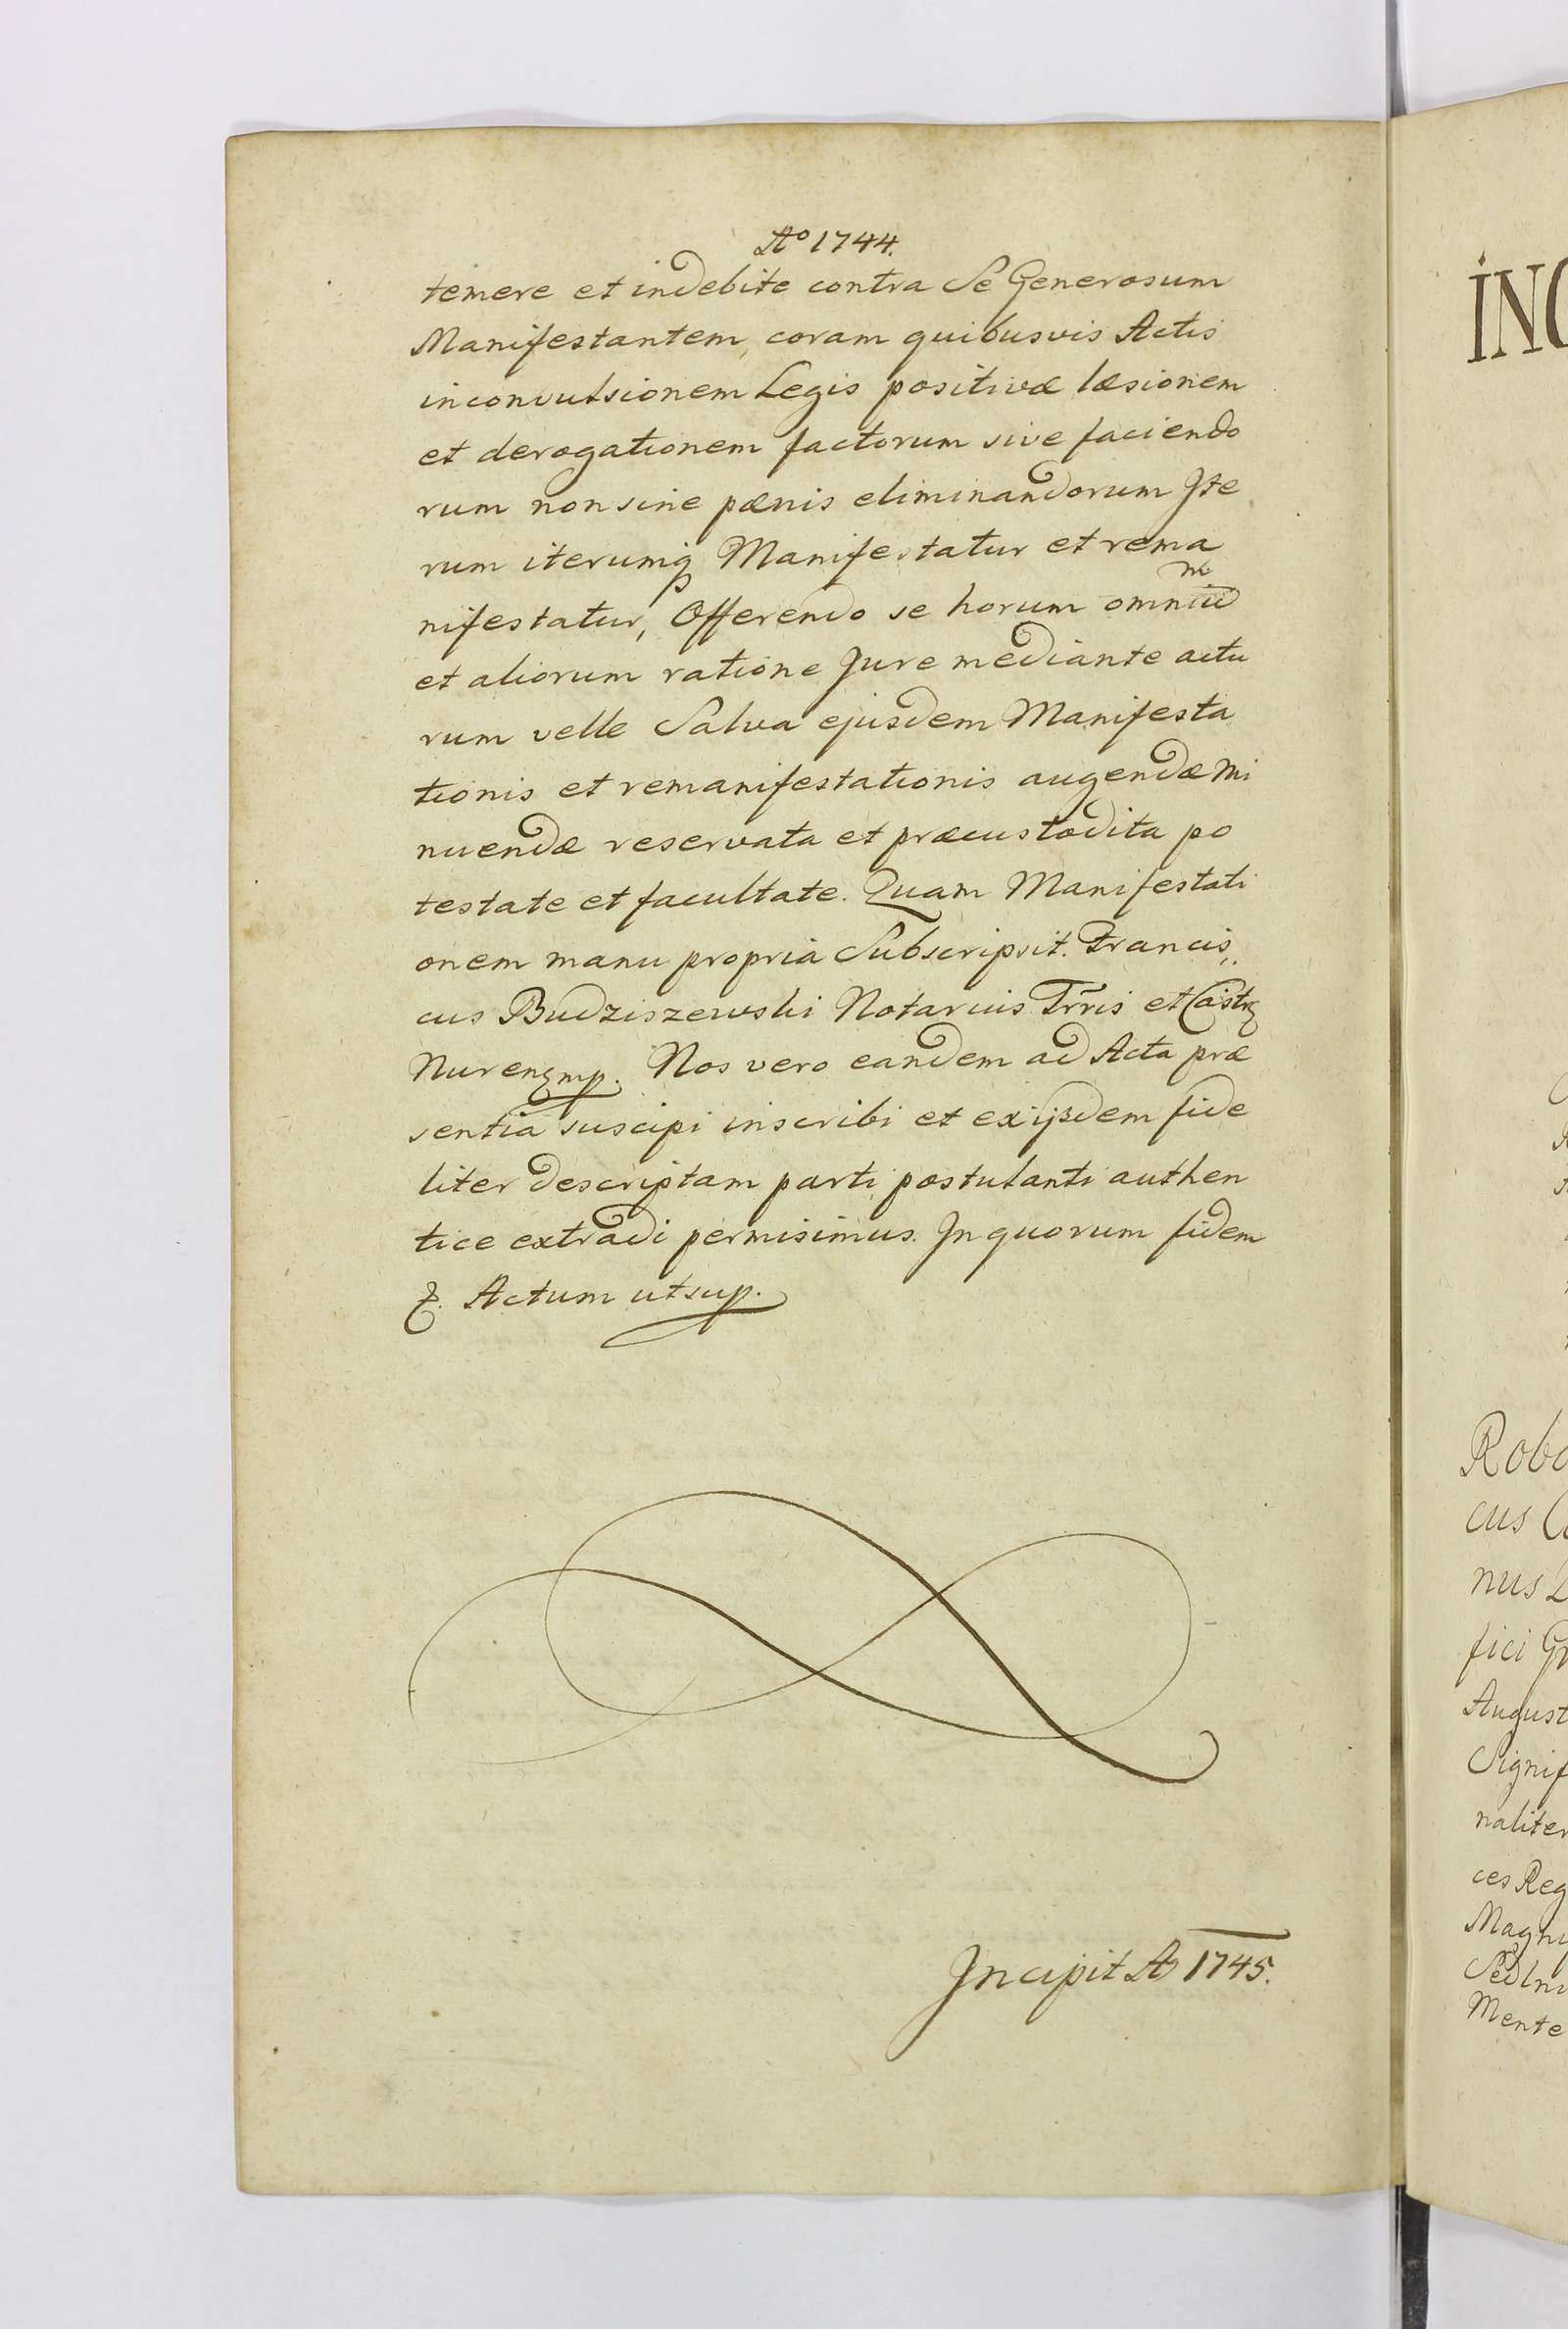 Ao 1744.
temere et indebite contra Se Generosum
Manifestantem, coram quibusvis Actis
inconvulsionem Legis positivæ læsionem
et derogationem factorum sive faciendo
rum non sine pœnis eliminandorum Ite
rum iterumq Manifestatur et rema
nifestatur, Offerendo se horum omniu
et aliorum ratione Jure mediante actu
rum velle Salva ejusdem Manifesta
tionis et remanifestationis augendæ mi
nuendæ reservata et præcustodita po
testate et facultate. Quam Manifestati
onem manu propria Subscripsit. Francis„
cus Budziszewski Notarius Trris et Castr
Nuren mp. Nos vero eandem ad Acta præ
sentia suscipi inscribi et ex ijsdem fide
liter descriptam parti postulanti authen
tice extradi permisimus. In quorum fidem
&. Actum ut sup.
Incipit Ao 1745.
INC
Robo
cus
nus
fici
August
Signif
naliter
ces Reg
Magni
Mente